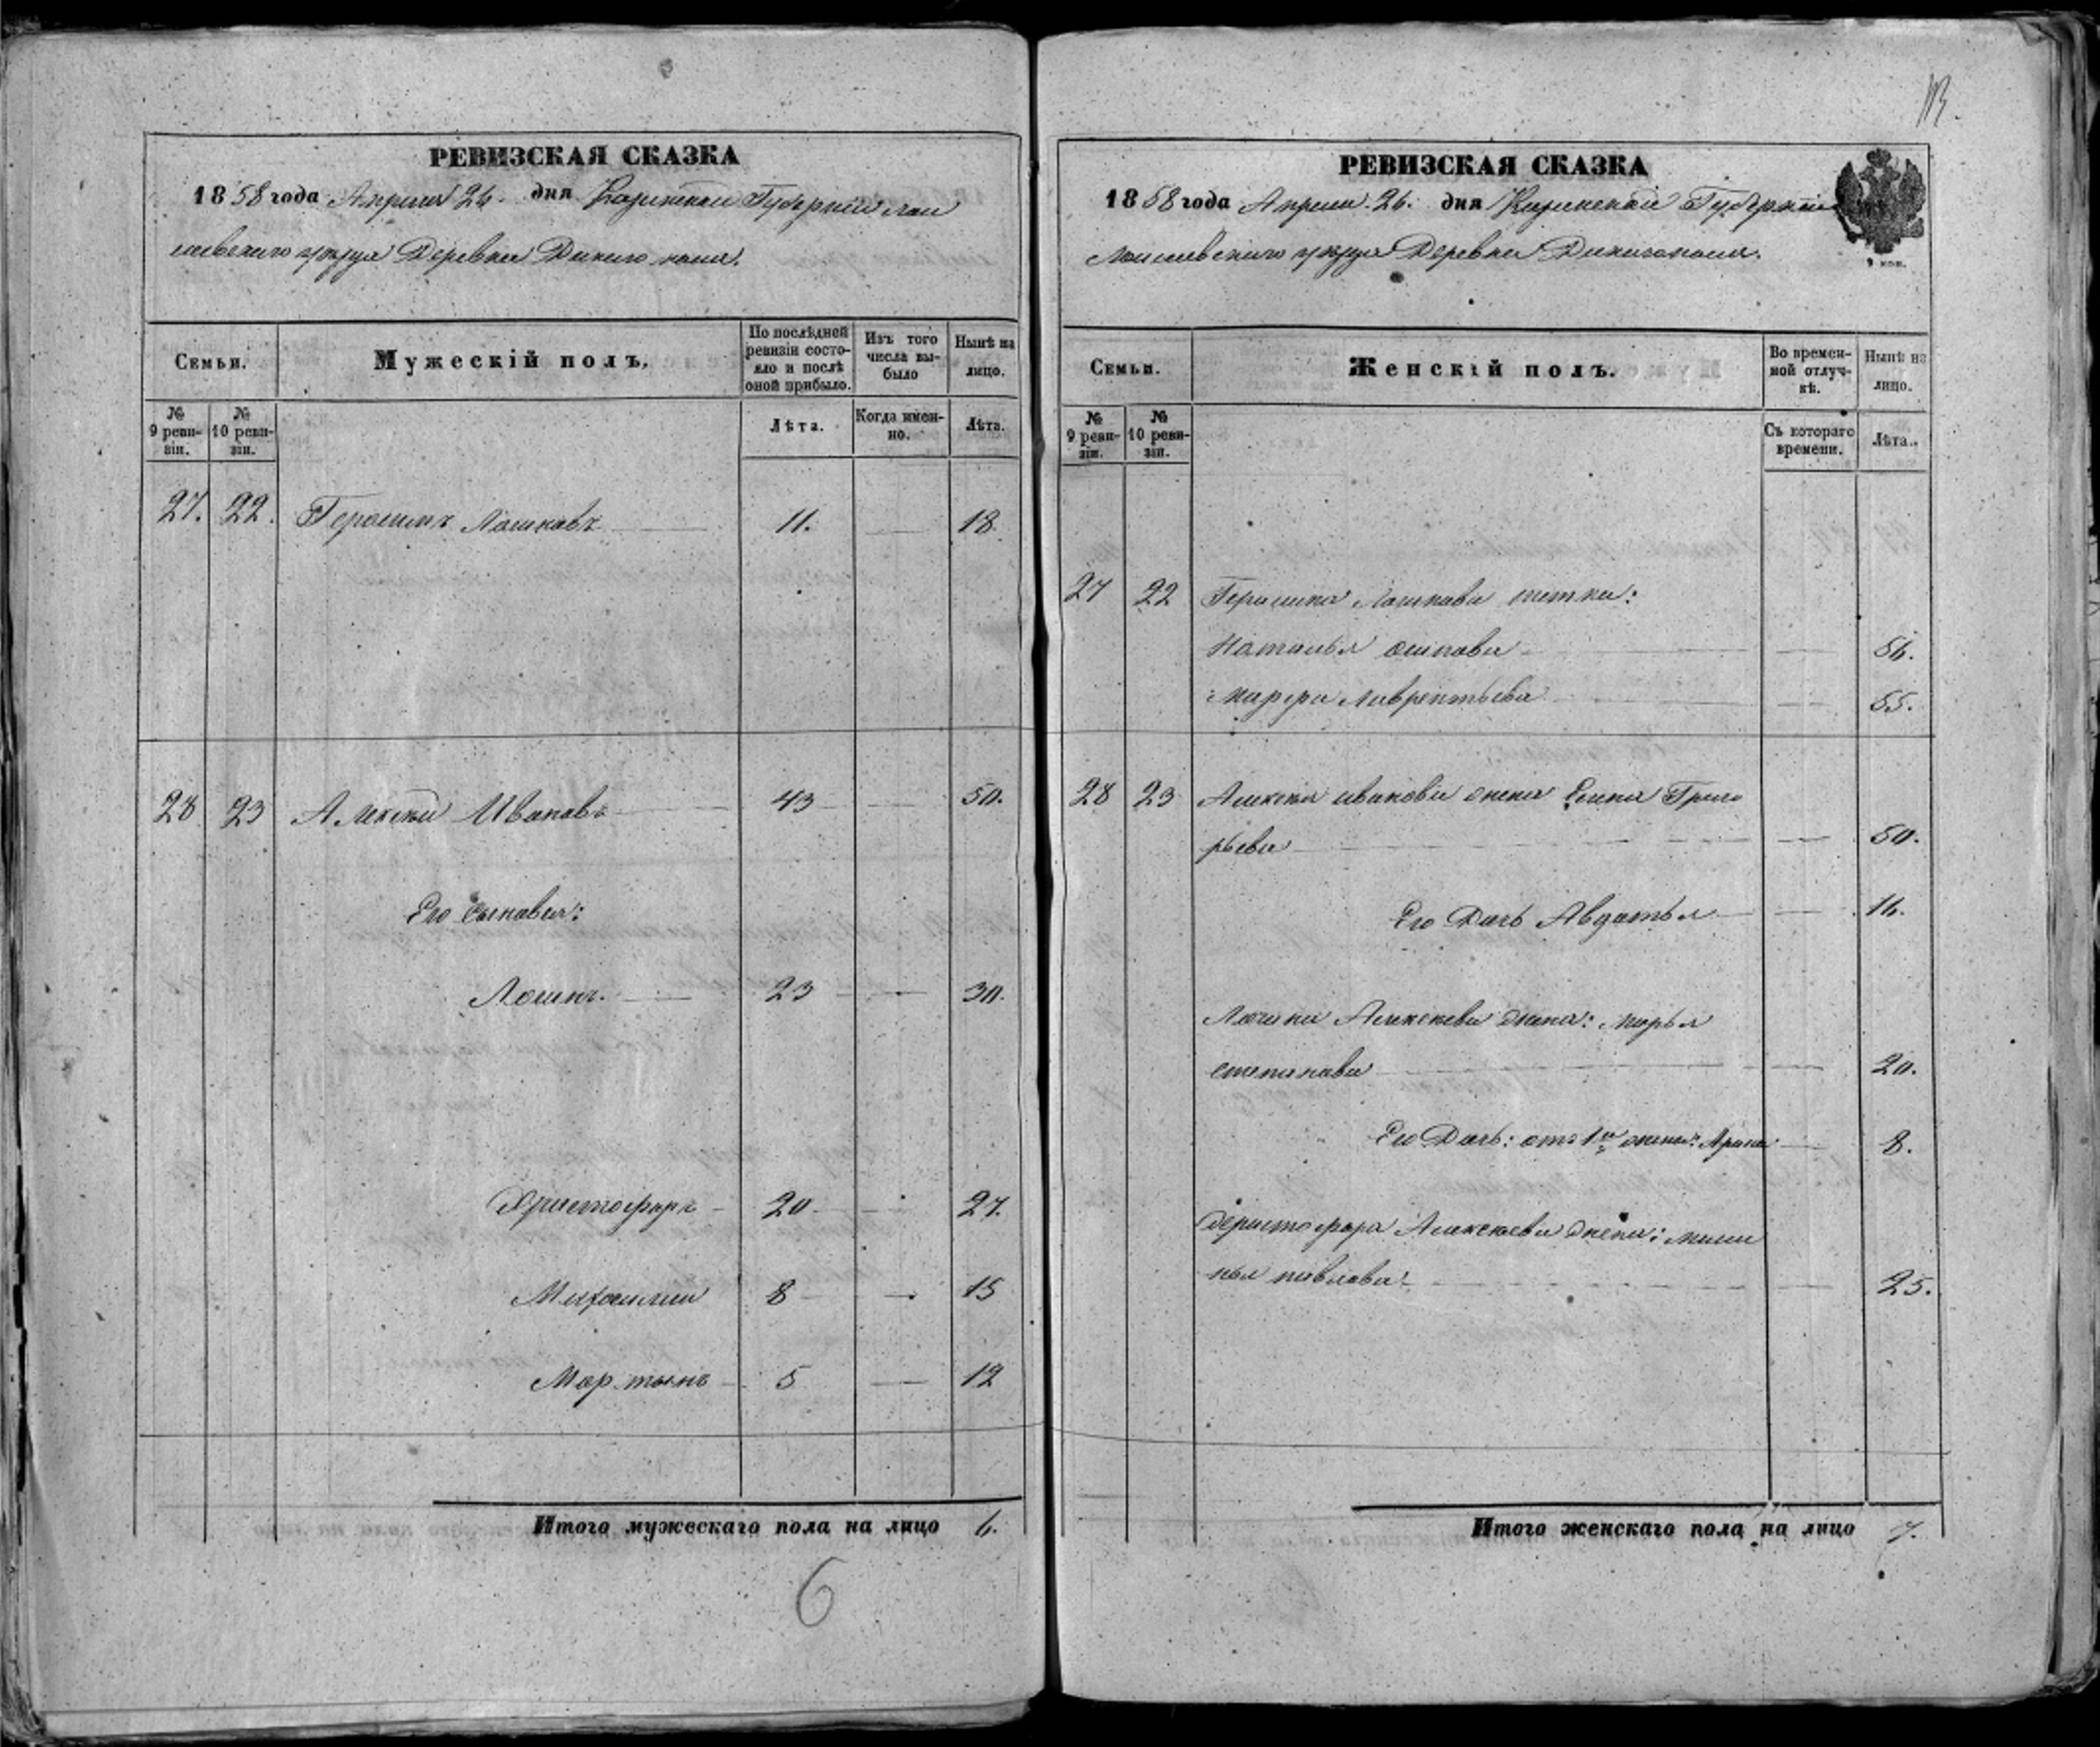 РЕВИЗСКАЯ СКАЗКА
1858 года Апреля 26. дня Казанской Губернии Лаи
шевского уезда Деревни Дикого поля.
Семьи.
Мужескій полъ.
По послѣдней ревизіи состояло и послѣ оной прибыло.
Изъ того числа выбыло
Нынѣ на лицо.
№ 9 ревизіи.
№ 10 ревизіи.
Лѣта.
Когда именно.
Лѣта.
27. 22. 11. 18.
28 23 Алексѣй Ивановъ 43 50.
Его сыновья:
23 30.
Христофоръ 20 27.
8 15
Мартынъ 5 12
Итого мужескаго пола на лицо 6.
6
РЕВИЗСКАЯ СКАЗКА
1858 года Апреля 26. дня Казанской Губернии
Лаишевского уезда Деревни Дикогополя.
9 коп.
Семьи.
Женскій полъ.
Во временной отлучкѣ.
Нынѣ на лицо.
№ 9 ревизіи.
№ 10 ревизіи.
Съ котораго времени.
Лѣта.
27 22 тетки:
Наталья Осипова 56.
Марфа Лаврентьева 55.
28 23 Алексѣя Иванова жена Елена Григо
рьева 50.
Его Дочь Авдотья 16.
Алексеева жена: Марья
степанова 20.
Его Дочь: отъ 1й жены: Арина 8.
Христофора Алексеева жена: Мела
нья павлова 25.
Итого женскаго пола на лицо 7.